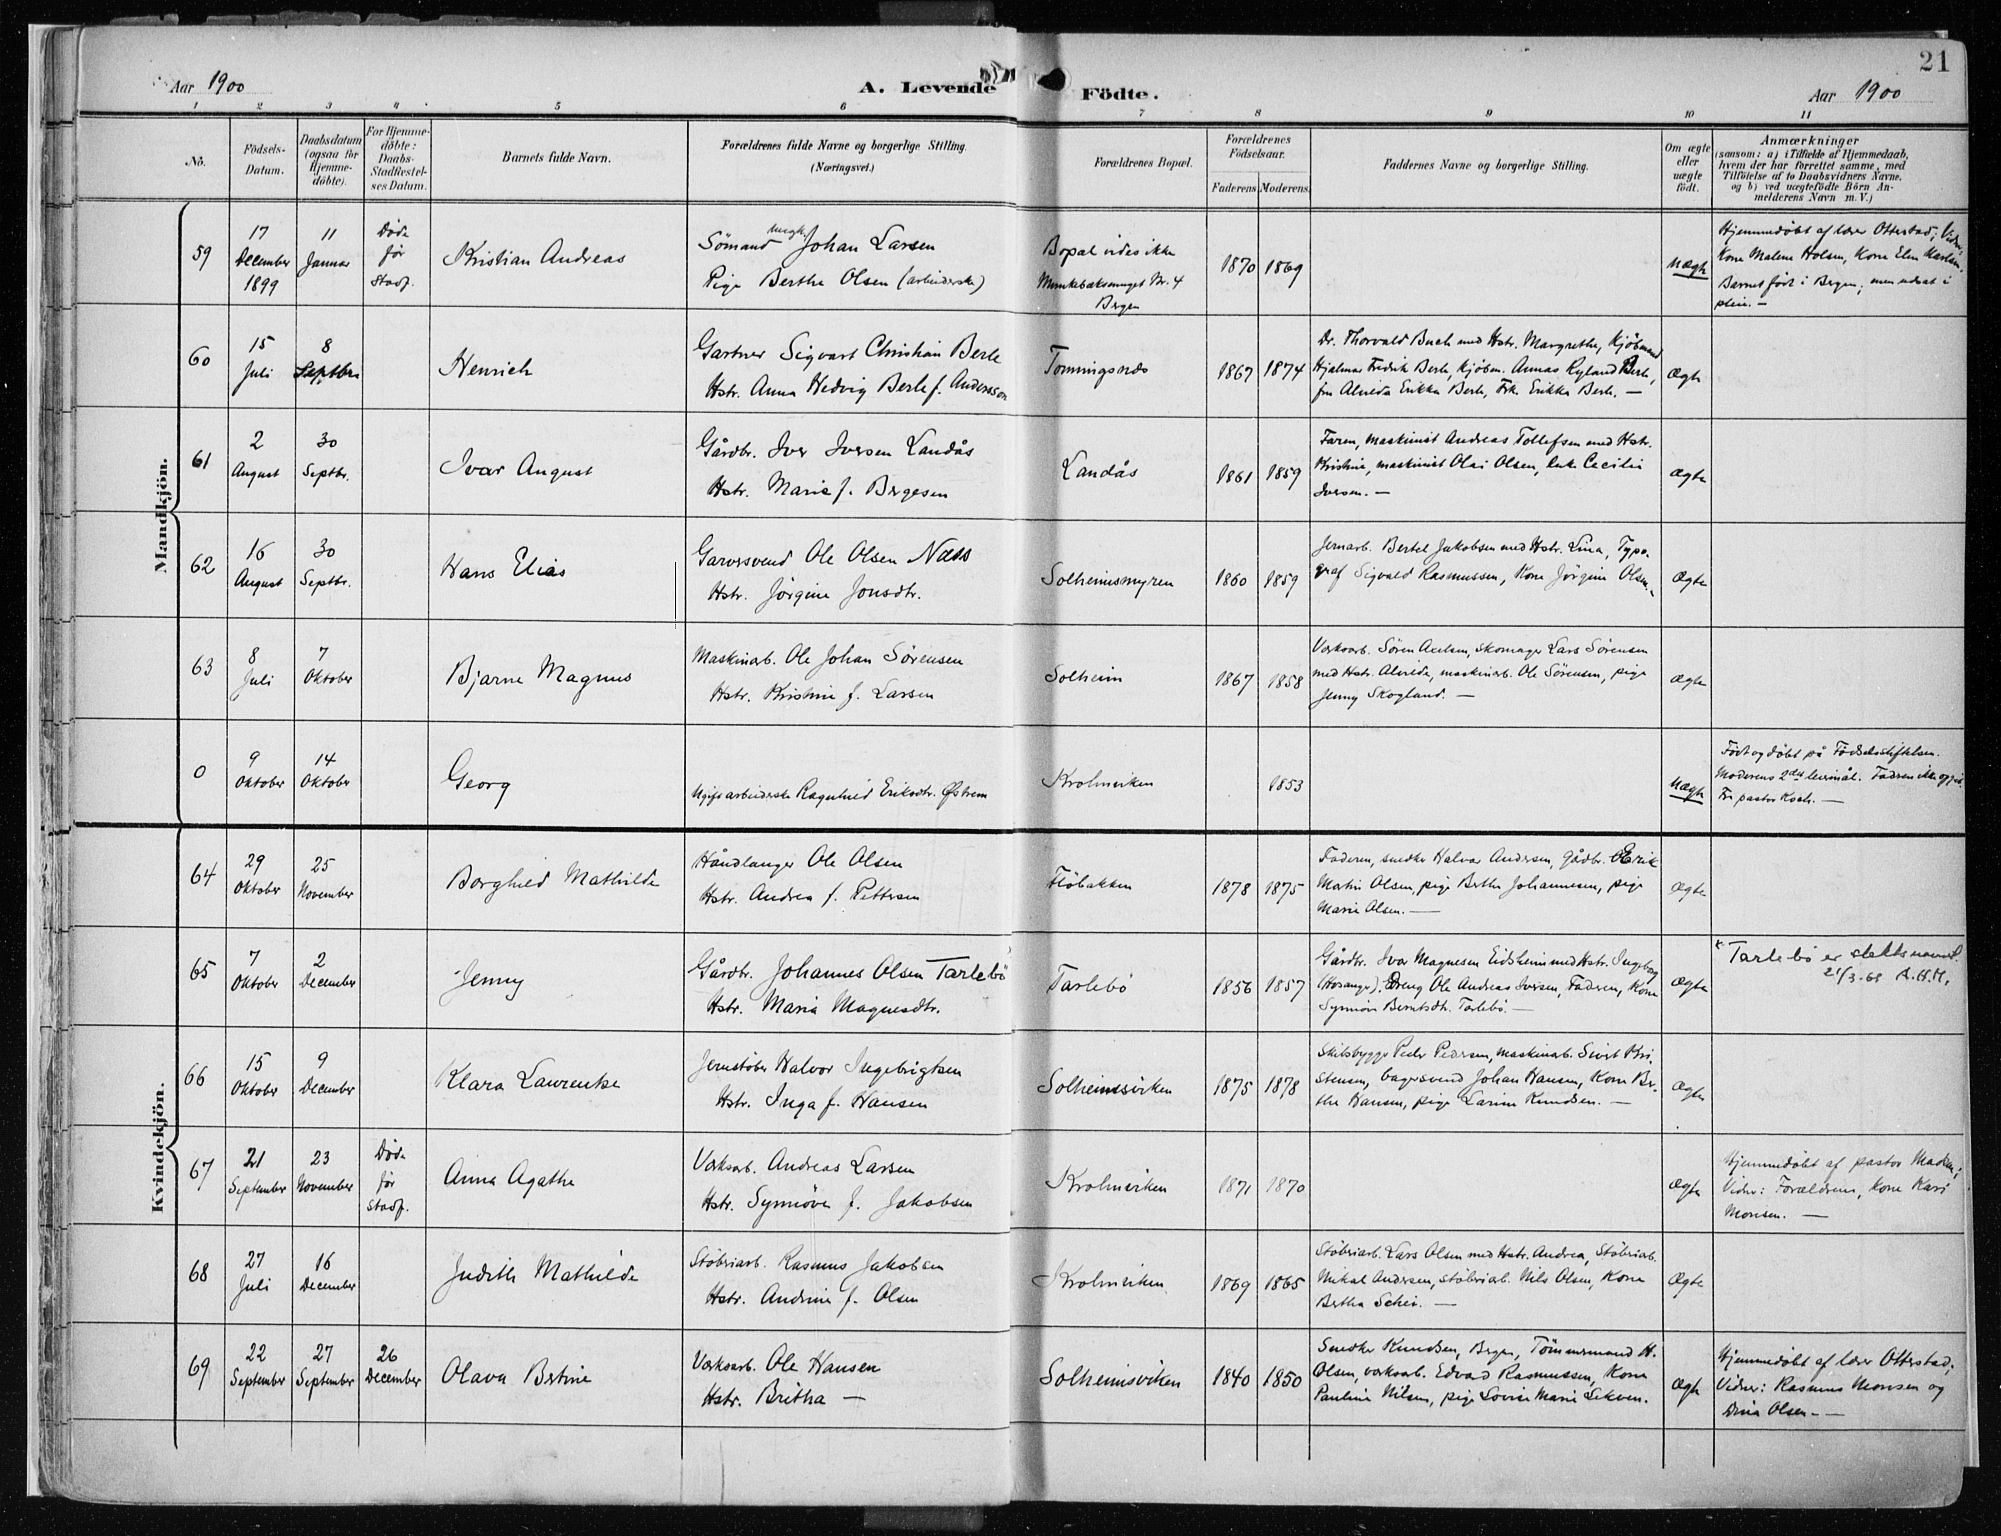 21
Aar 1900
A. Levende Födte.
Aar 1900
1 2 3 4 5 6 7 8 9 10 11
No.
Födsels-
Datum.
Daabsdatum
(ogsaa for
Hjemme-
döbte).
For Hjemme-
döbte:
Daabs-
Stadfæstel-
ses Datum.
Barnets fulde Navn.
Forældrenes fulde Navne og borgerlige Stilling.
(Næringsvei.)
Forældrenes Bopæl.
Forældrenes
Födselsaar.
Faderens Moderens
Faddernes Navne og borgerlige Stilling.
Om ægte
eller
uægte
födt.
Anmærkninger
(saasom: a) i Tilfælde af Hjemmedaab,
hvem der har forrettet samme, med
Tilföielse af to Daabsvidners Navne,
og b) ved uægtefödte Börn An-
melderens Navn m. V.)
Mandkjön.
59
17
December
1899
11
Januar
Døde
før
Stadf.
Kristian Andreas
Sömand ungk. Johan Larsen
Pige Berthe Olsen (arbeiderske)
Bopæl vides ikke
Munkebæksmuget Nr. 4
Bergen
1870 1869
Uægte
Hjemmedøbt af lærer Otterstad; Vidn:
Kone Malene Holsen, Kone Elen
Barnet født i Bergen, men udsat i
pleie. —
60
15
Juli
8
Septbr.
Henrich
Gartner Sigvart Christian Berle
Hstr. Anna Hedvig Berle f. Andersson
Tømmingsnæs
1867 1874
Dr. Thorvald Buch med Hstr. Margrethe, Kjöbmand
Hjalmar Fredrik Berle, Kjöbm. Annas Ryland Berle,
fru Alvilda Erikka Berle, Frk. Erikka Berle. —
Ægte
61
2
August
30
Septbr.
Ivar August
Gårdbr. Iver Iversen Landås
Hstr. Marie f. Bergesen
Landås
1861 1859
Faren, maskinist Andreas Tollefsen med Hstr.
Kristine, maskinist Olai Olsen, Enke Cecilie
Iversen. —
Ægte
62
16
August
30
Septbr.
Hans Elias
Garversvend Ole Olsen Næss
Hstr. Jørgine Jonsdtr.
Solheimsmyren
1860 1859
Jernarb. Bertel Jakobsen med Hstr. Lina, Typo-
graf Sigvald Rasmussen, Kone Jørgine Olsen. —
Ægte
63
8
Juli
7
Oktober
Bjarne Magnus
Maskinarb. Ole Johan Sørensen
Hstr. Kristine f. Larsen
Solheim
1867 1858
Værksarb. Søren Axelsen, skomager Lars Sørensen
med Hstr. Alvilde, maskinarb. Ole Sørensen, pige
Jenny Skogland. —
Ægte
0
9
Oktober
14
Oktober
Georg
Ugift arbeiderske Ragnhild Eriksdtr. Østrem
Krohnviken
1853
Uægte
Født og døbt på Fødselsstiftelsen.
Moderens 2det leiermål. Faderen ikke opgivet.
Fr. pastor Koch. —
Kvindekjön.
64
29
Oktober
25
November
Borghild Mathilde
Håndlanger Ole Olsen
Hstr. Andrea f. Pettersen
Fløbakken
1878 1875
Faderen, snedker Halvor Andersen, gårdbr. Erik
Matin Olsen, pige Berthe Johannesen, pige
Marie Olsen. —
Ægte
65
7
Oktober
2
December
Jenny
Gårdbr. Johannes Olsen Tarlebö
Hstr. Maria Magnesdtr.
Tarlebö
1856 1857
Gårdbr. Ivar Magnesen Eidsheim med Hstr. Ingeborg
(Hosanger). Dreng Ole Andreas Iversen, Faderen, Kone
Synnöve Berntsdtr. Tarlebö. —
Ægte
x Tarlebö er slektsnavnet.
21/3-68 A.H.M.
66
15
Oktober
9
December
Klara Laurentse
Jernstøber Halvor Ingebrigtsen
Hstr. Inga f. Hansen
Solheimsviken
1875 1878
Skibsbygger Peder Pedersen, maskinarb. Sivert Kri-
stensen, bagersvend Johan Hansen, Kone Ber-
the Hansen, pige Larine Knudsen. —
Ægte
67
21
September
23
November
Døde
før
Stadf.
Anna Agathe
Værksarb. Andreas Larsen
Hstr. Synnöve f. Jakobsen
Krohnviken
1871 1870
Ægte
Hjemmedøbt af pastor Madsen;
Vidner: Forældrene, Kone Kari
Monsen. —
68
27
Juli
16
December
Judith Mathilde
Støberiarb. Rasmus Jakobsen
Hstr. Andrine f. Olsen
Krohnviken
1869 1865
Støberiarb. Lars Olsen med Hstr. Andrea, Støberiarb.
Mikal Andersen, støberiarb. Nils Olsen, Kone
Bertha Schei. —
Ægte
69
22
September
27
September
26
December
Olava Bertine
Værksarb. Ole Hansen
Hstr. Britha —
Solheimsviken
1840 1850
Snedker Knudsen, Bergen, Tømmermand H.
Olsen, værksarb. Edvard Rasmussen, Kone
Pauline Nilsen, pige Lovise Marie Lekven.
Ægte
Hjemmedøbt af lærer Otterstad;
Vidner: Rasmus Monsen og
Dina Olsen. —